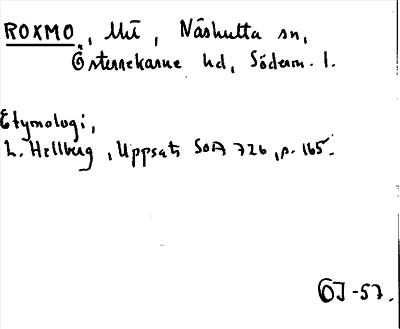 ROXMO, Uti, Näshulta sn,
Österrekarne hd, Söderm. l.
Etymologi,
L. Hellberg, Uppsats SOA 726, p. 165.
ÖJ-57.